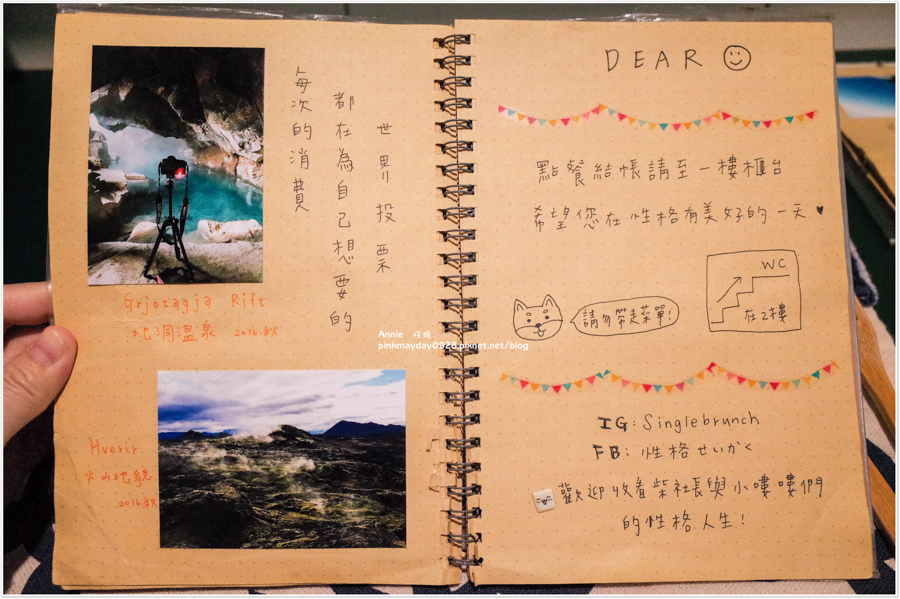 每次的消費
都在為自己想要的
世界投票
Grjótagja Rift
地洞溫泉 2016.秋
Hverir.
火山地貌
2016.秋
Annie
pinkmayday0928.pixnet.net/blog
DEAR
點餐結帳請至一樓櫃台
希望您在性格有美好的一天
請勿帶走菜單!
WC
在2樓
IG: Singlebrunch
FB: 性格せいかく
歡迎收看柴社長與小嘍嘍們
的性格人生!